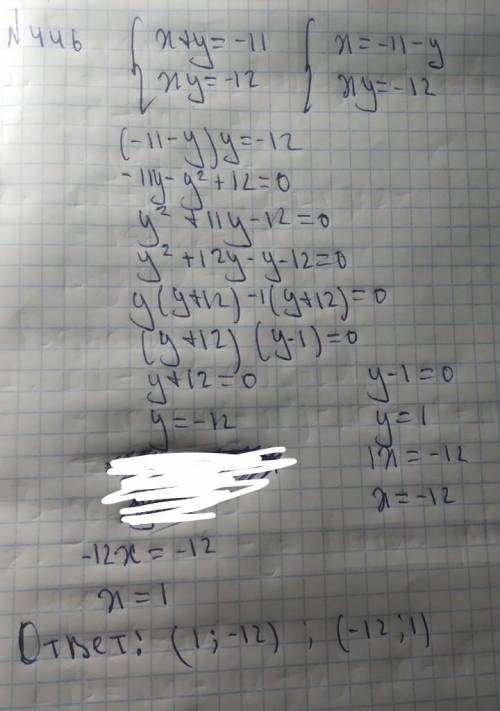 №446 { x+y=-11 { x=-11-y
xy=-12 xy=-12
(-11-y)y=-12
-11y-y²+12=0
y²+11y-12=0
y²+12y-y-12=0
y(y+12)-1(y+12)=0
(y+12)(y-1)=0
y+12=0 y-1=0
y=-12 y=1
1x=-12
x=-12
-12x=-12
x=1
Ответ: (1;-12) ; (-12;1)